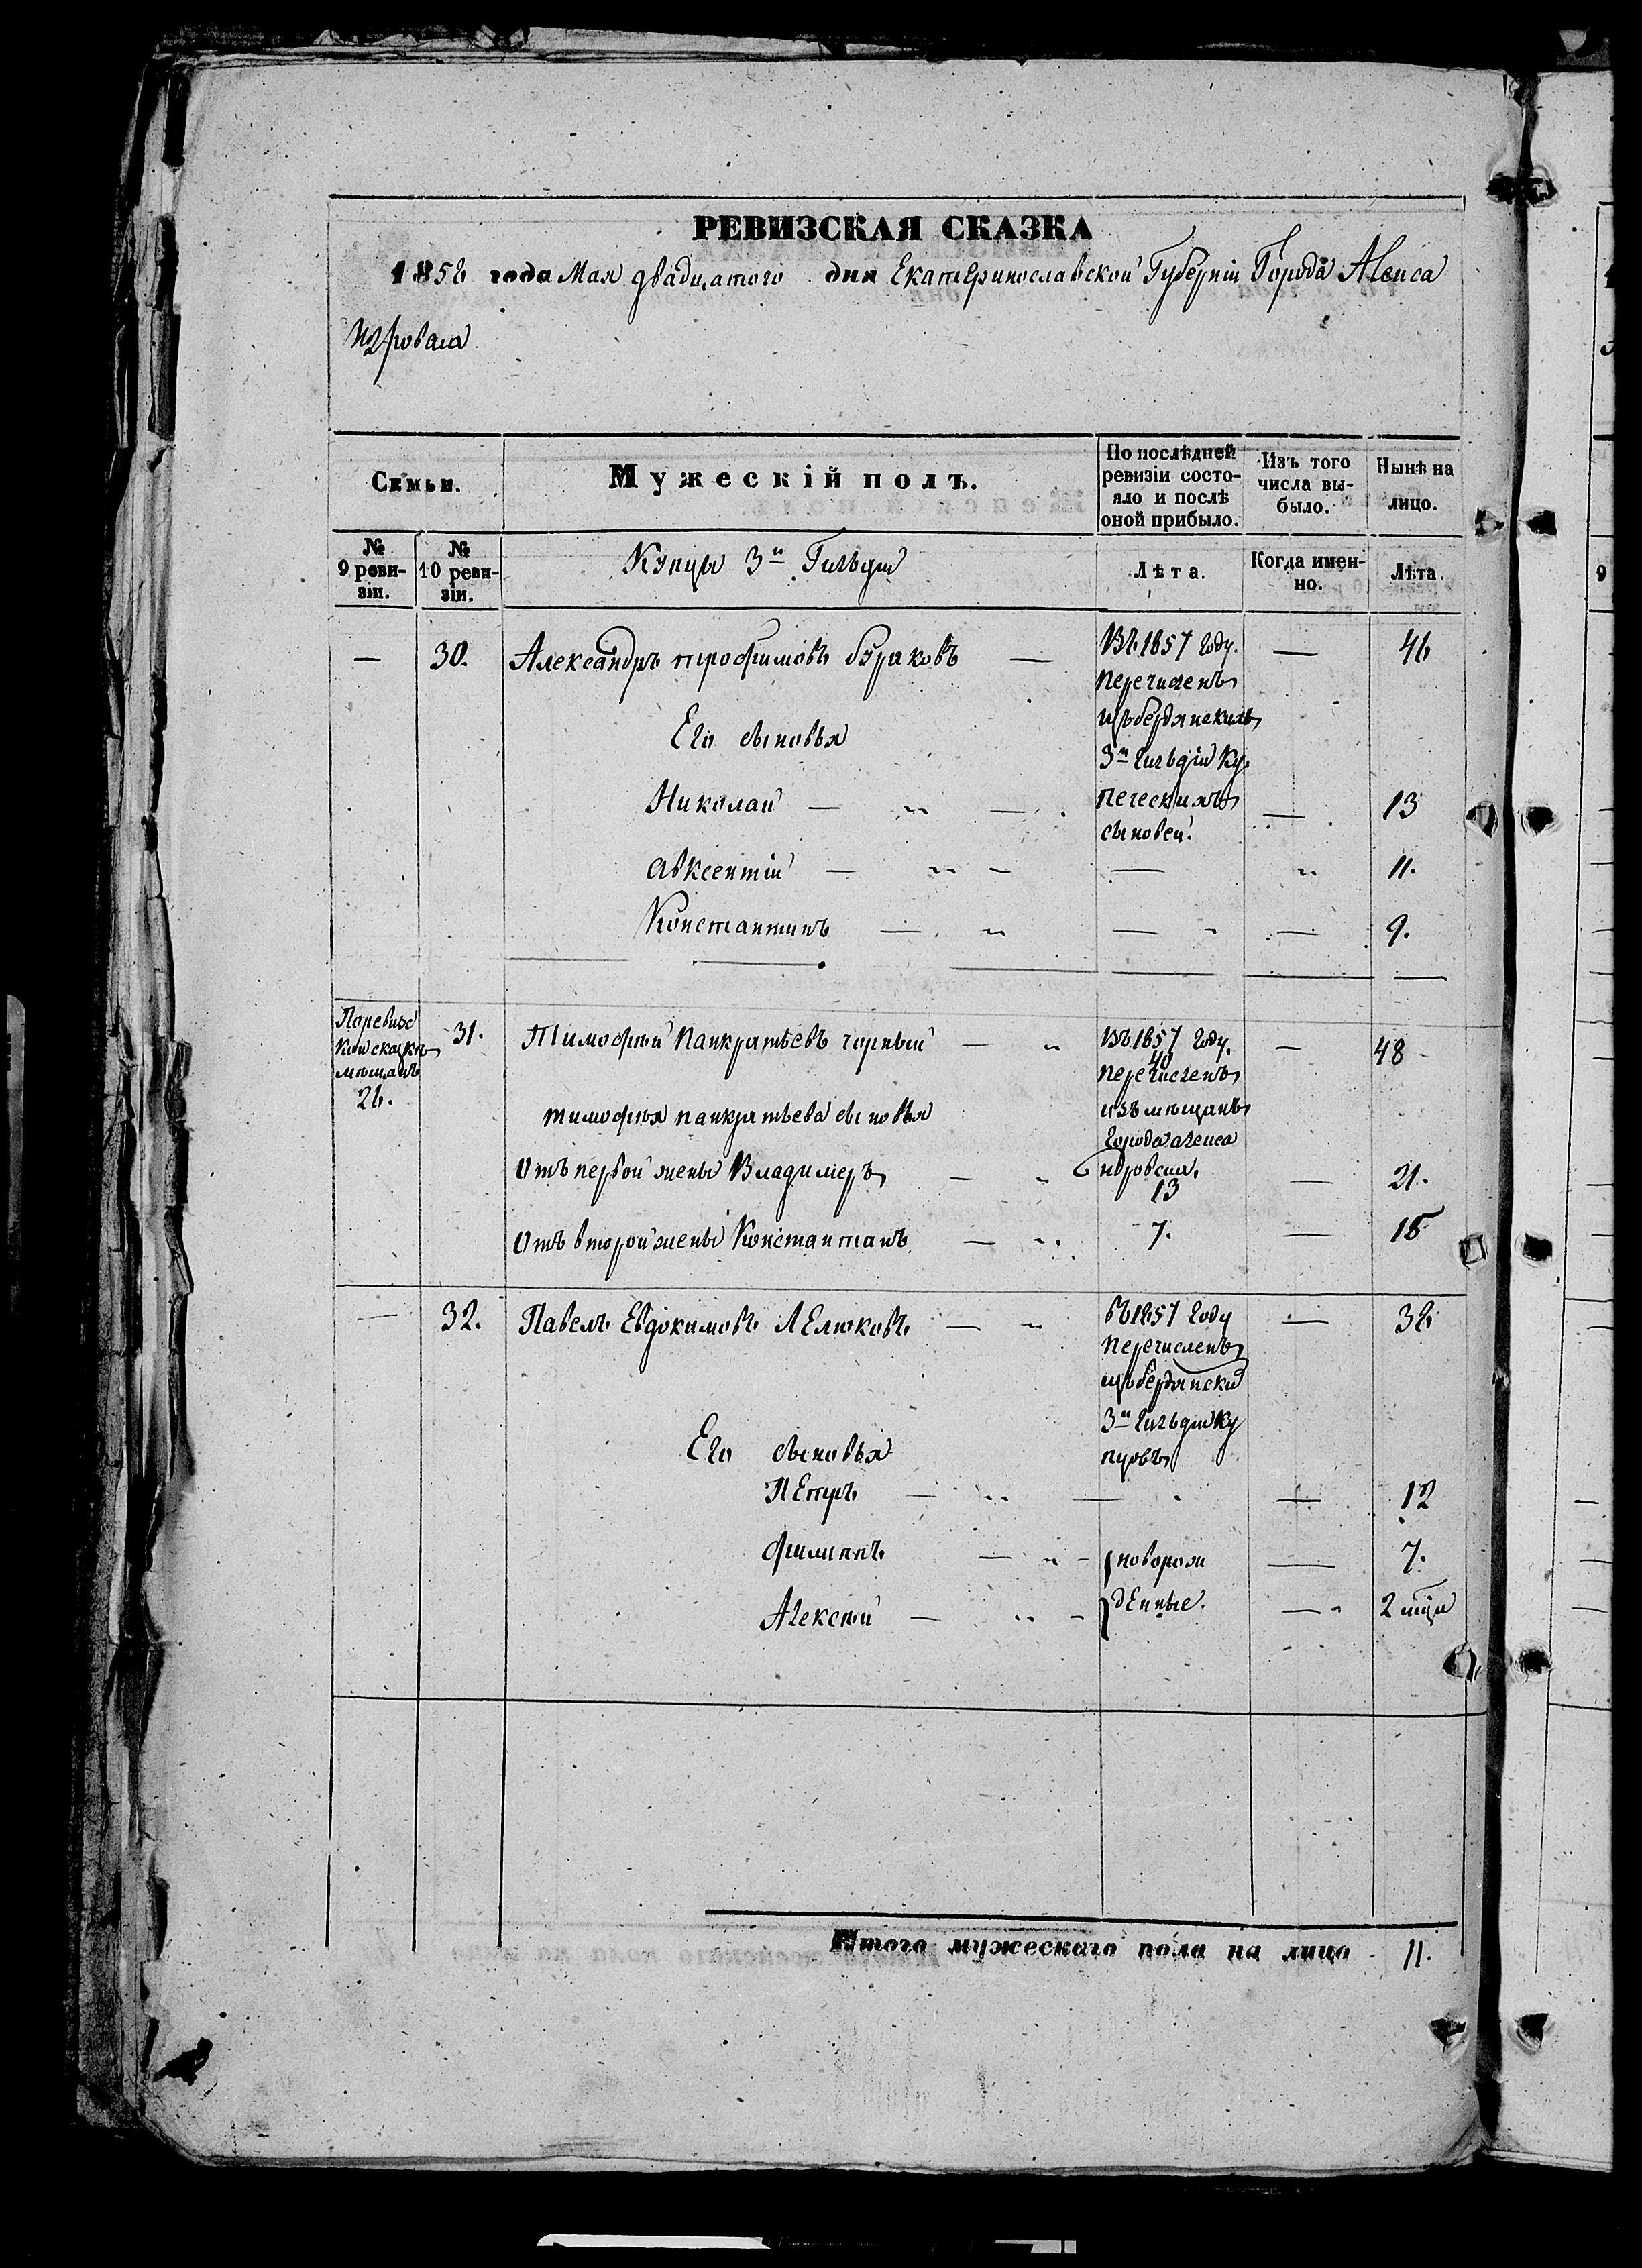 РЕВИЗСКАЯ СКАЗКА
1858 года Мая двадцатого дня Екатеринославской Губерніи Города Алекса
ндровска
Семьи.
Мужескій полъ.
По послѣдней ревизіи состояло и послѣ оной прибыло.
Изъ того числа выбыло.
Нынѣ на лицо.
№ 9 ревизіи.
№ 10 ревизіи.
Купцы 3й Гильдіи
Лѣта.
Когда именно.
Лѣта.
— 30. Александръ трофимовъ бураковъ — Въ 1857 году. — 46
перечисленъ
Его сыновья изъ бердянскихъ
3й гильдіи ку
Николай — „ — печескихъ — 13
сыновей.
авксентій — „ — — „ 11.
Константинъ — „ — „ — 9.
По ревизс
кой сказкѣ
мещанъ
26.
31. Тимофѣй панкратьевъ чорный — „ Въ 1857 году. — 48
40
перечисленъ
тимофѣя панкратьева сыновья изъ мещанъ
города алекса
Отъ первой жены Владимеръ — „ ндровска, — 21.
13
Отъ второй жены Константинъ — „ 7. — 15
— 32. Павелъ Евдокимовъ Лелюковъ — „ въ 1857 году — 38
перечисленъ
изъ бердянски
3й гильдіи ку
Его сыновья пцовъ
Петръ — „ — — 12
филиппъ — „ — новорож — 7.
Алексѣй — „ — денные. — „ 2 мѣця
Итого мужескаго пола на лицо 11.